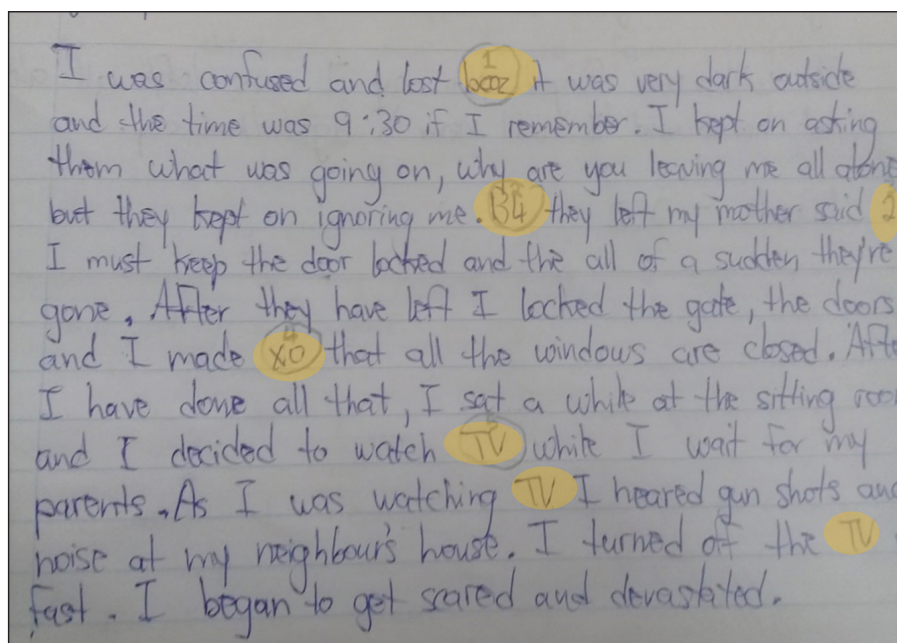 I was confused and lost bcoz it was very dark outside
and the time was 9:30 if I remember. I kept on asking
them what was going on, why are you leaving me all alone
but they kept on ignoring me. B4 they left my mother said 2
I must keep the door locked and the all of a sudden they're
gone. After they have left I locked the gate, the doors
and I made xo that all the windows are closed. Afte
I have done all that, I sat a while at the sitting room
and I decided to watch TV while I wait for my
parents. As I was watching TV I heared gun shots and
noise at my neighbour's house. I turned off the TV
fast. I began to get scared and devastated.